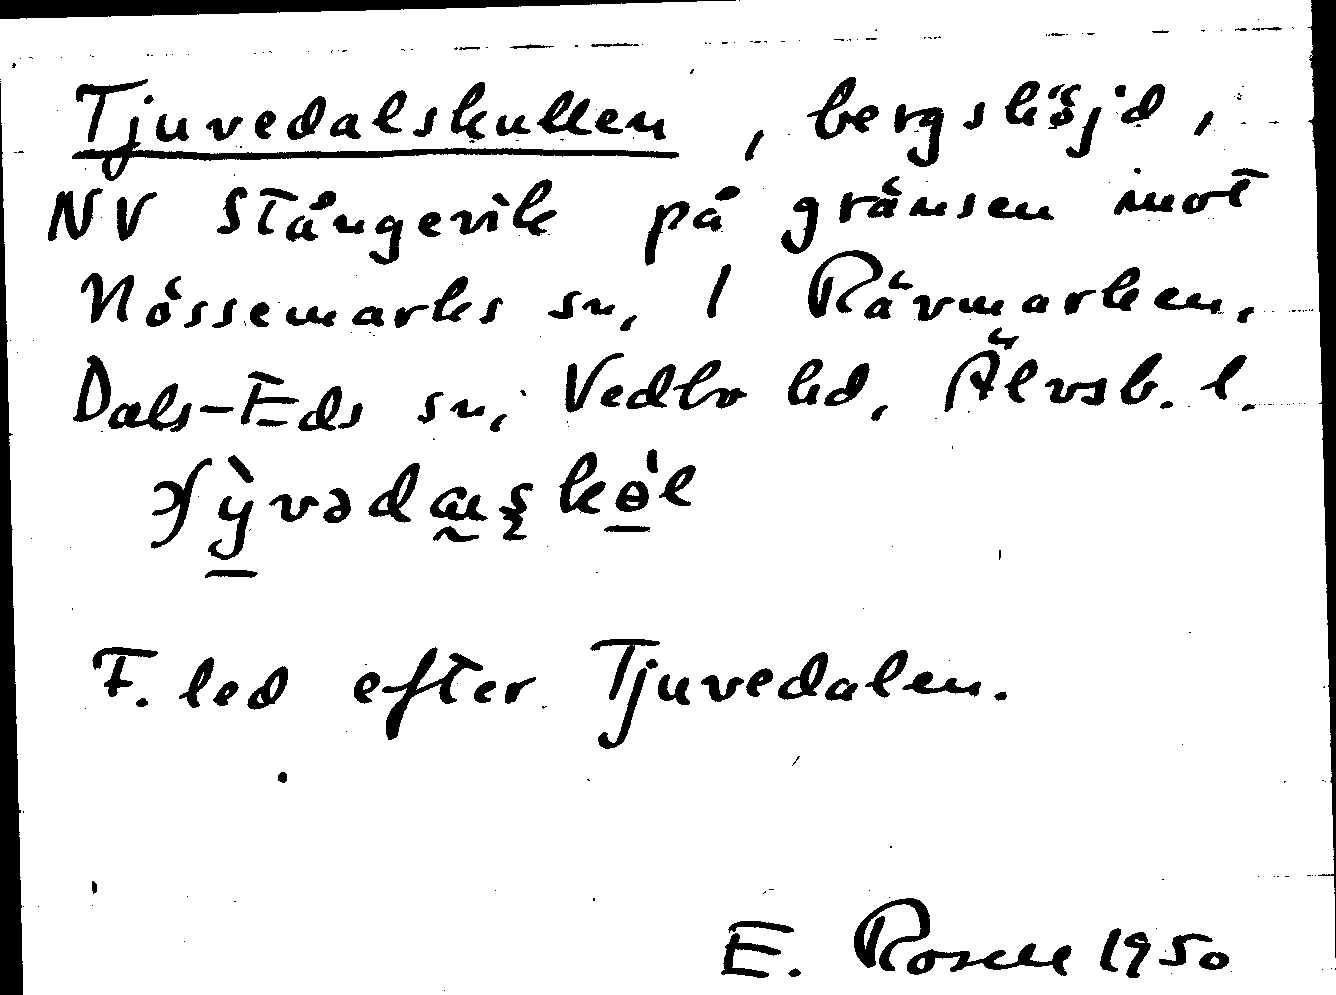 Tjuvedalskullen, bergshöjd,
NV Stångevik på gränsen mot
Nössemarks sn, 1 Rävmarken,
Dals-Eds sn, Vedbo hd, Älvsb. l.
F. led efter Tjuvedalen.
E. Rosell 1950